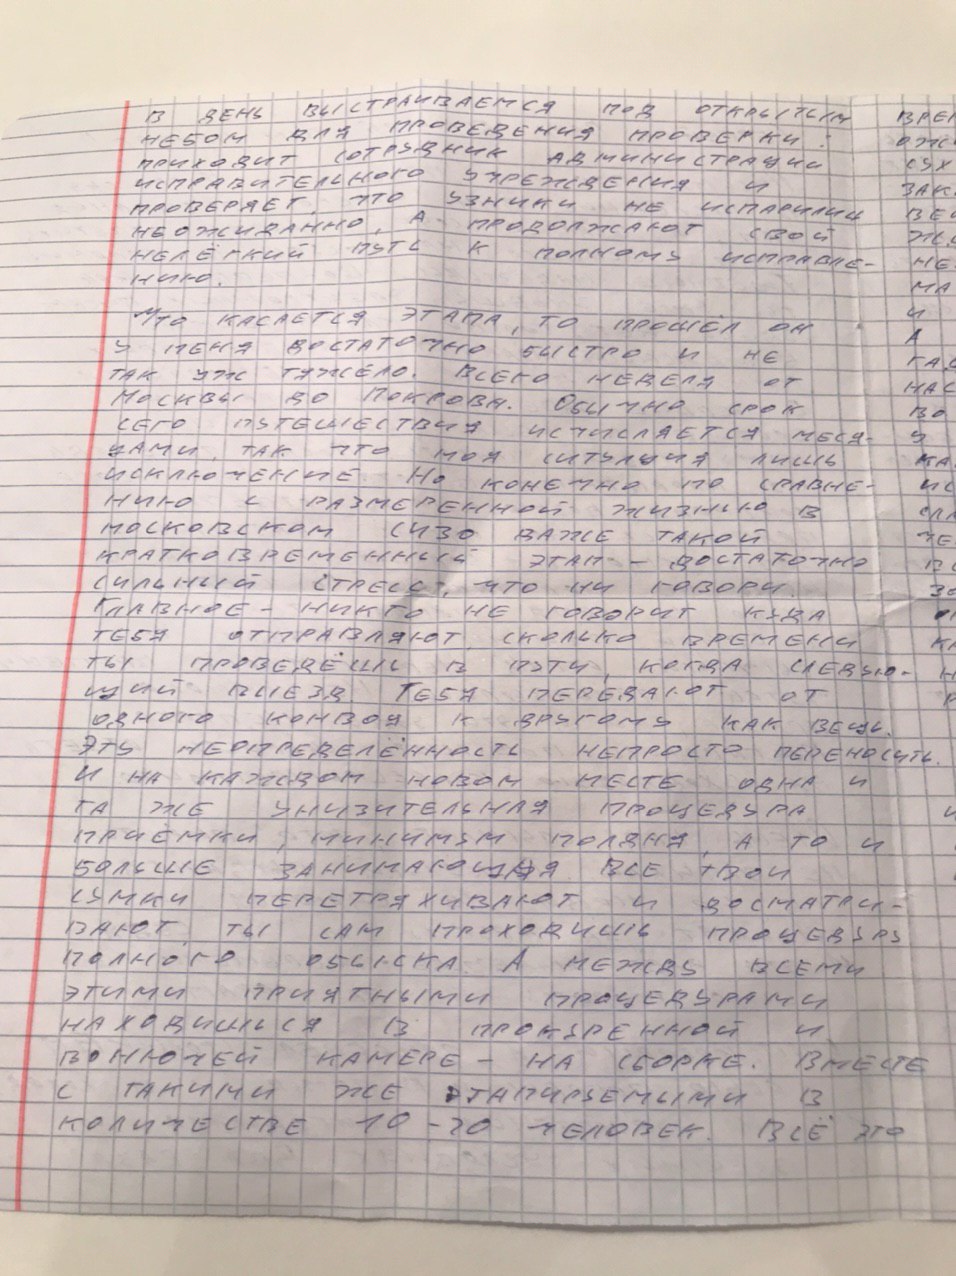 В ДЕНЬ ВЫСТРАИВАЕМСЯ ПОД ОТКРЫТЫМ
НЕБОМ ДЛЯ ПРОВЕДЕНИЯ ПРОВЕРКИ:
ПРИХОДИТ СОТРУДНИК АДМИНИСТРАЦИИ
ИСПРАВИТЕЛЬНОГО УЧРЕЖДЕНИЯ И
ПРОВЕРЯЕТ, ЧТО УЗНИКИ НЕ ИСПАРИЛИСЬ
НЕОЖИДАННО, А ПРОДОЛЖАЮТ СВОЙ
НЕЛЁГКИЙ ПУТЬ К ПОЛНОМУ ИСПРАВЛЕ-
НИЮ.
ЧТО КАСАЕТСЯ ЭТАПА, ТО ПРОШЁЛ ОН
У МЕНЯ ДОСТАТОЧНО БЫСТРО И НЕ
ТАК УЖ ТЯЖЕЛО. ВСЕГО НЕДЕЛЯ ОТ
МОСКВЫ ДО ПОКРОВА. ОБЫЧНО СРОК
СЕГО ПУТЕШЕСТВИЯ ИСЧИСЛЯЕТСЯ МЕСЯ-
ЦАМИ, ТАК ЧТО МОЯ СИТУАЦИЯ ЛИШЬ
ИСКЛЮЧЕНИЕ. НО КОНЕЧНО ПО СРАВНЕ-
НИЮ С РАЗМЕРЕННОЙ ЖИЗНЬЮ В
МОСКОВСКОМ СИЗО ДАЖЕ ТАКОЙ
КРАТКОВРЕМЕННЫЙ ЭТАП - ДОСТАТОЧНО
СИЛЬНЫЙ СТРЕСС, ЧТО НИ ГОВОРИ.
ГЛАВНОЕ - НИКТО НЕ ГОВОРИТ КУДА
ТЕБЯ ОТПРАВЛЯЮТ, СКОЛЬКО ВРЕМЕНИ
ТЫ ПРОВЕДЁШЬ В ПУТИ, КОГДА СЛЕДУЮ-
ЩИЙ ВЫЕЗД. ТЕБЯ ПЕРЕДАЮТ ОТ
ОДНОГО КОНВОЯ К ДРУГОМУ КАК ВЕЩЬ.
ЭТУ НЕОПРЕДЕЛЁННОСТЬ НЕПРОСТО ПЕРЕНОСИТЬ.
И НА КАЖДОМ НОВОМ МЕСТЕ ОДНА И
ТА ЖЕ УНИЗИТЕЛЬНАЯ ПРОЦЕДУРА
ПРИЁМКИ, МИНИМУМ ПОЛДНЯ, А ТО И
БОЛЬШЕ ЗАНИМАЮЩАЯ. ВСЕ ТВОИ
СУМКИ ПЕРЕТРЯХИВАЮТ И ДОСМАТРИ-
ВАЮТ, ТЫ САМ ПРОХОДИШЬ ПРОЦЕДУРУ
ПОЛНОГО ОБЫСКА. А МЕЖДУ ВСЕМИ
ЭТИМИ ПРИЯТНЫМИ ПРОЦЕДУРАМИ
НАХОДИШЬСЯ В ПРОКУРЕННОЙ И
ВОНЮЧЕЙ КАМЕРЕ - НА СБОРКЕ. ВМЕСТЕ
С ТАКИМИ ЖЕ ЭТАПИРУЕМЫМИ В
КОЛИЧЕСТВЕ 10-20 ЧЕЛОВЕК. ВСЁ ЭТО